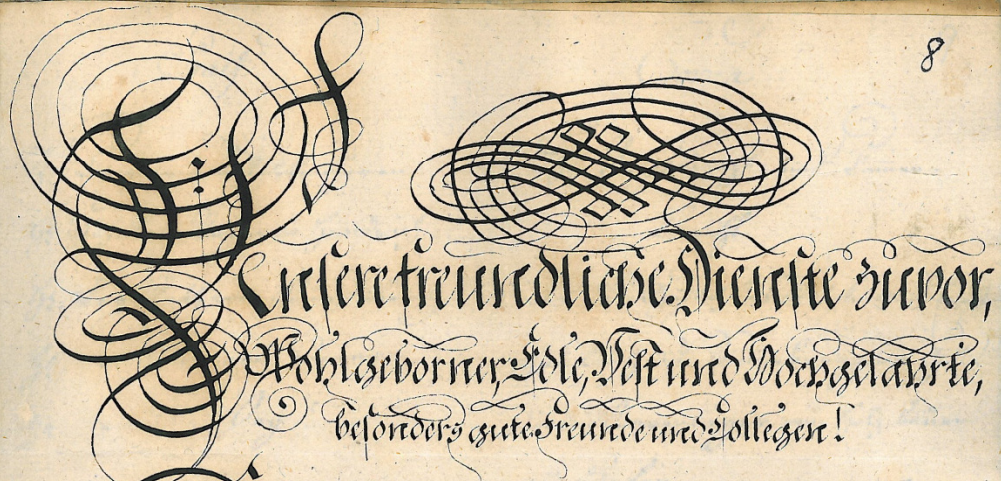 8
Unsere freundliche Dienste zuvor,
Wohlgeborner, Edle, Vest und Hochgelahrte,
besonders gute Freunde und Collegen!